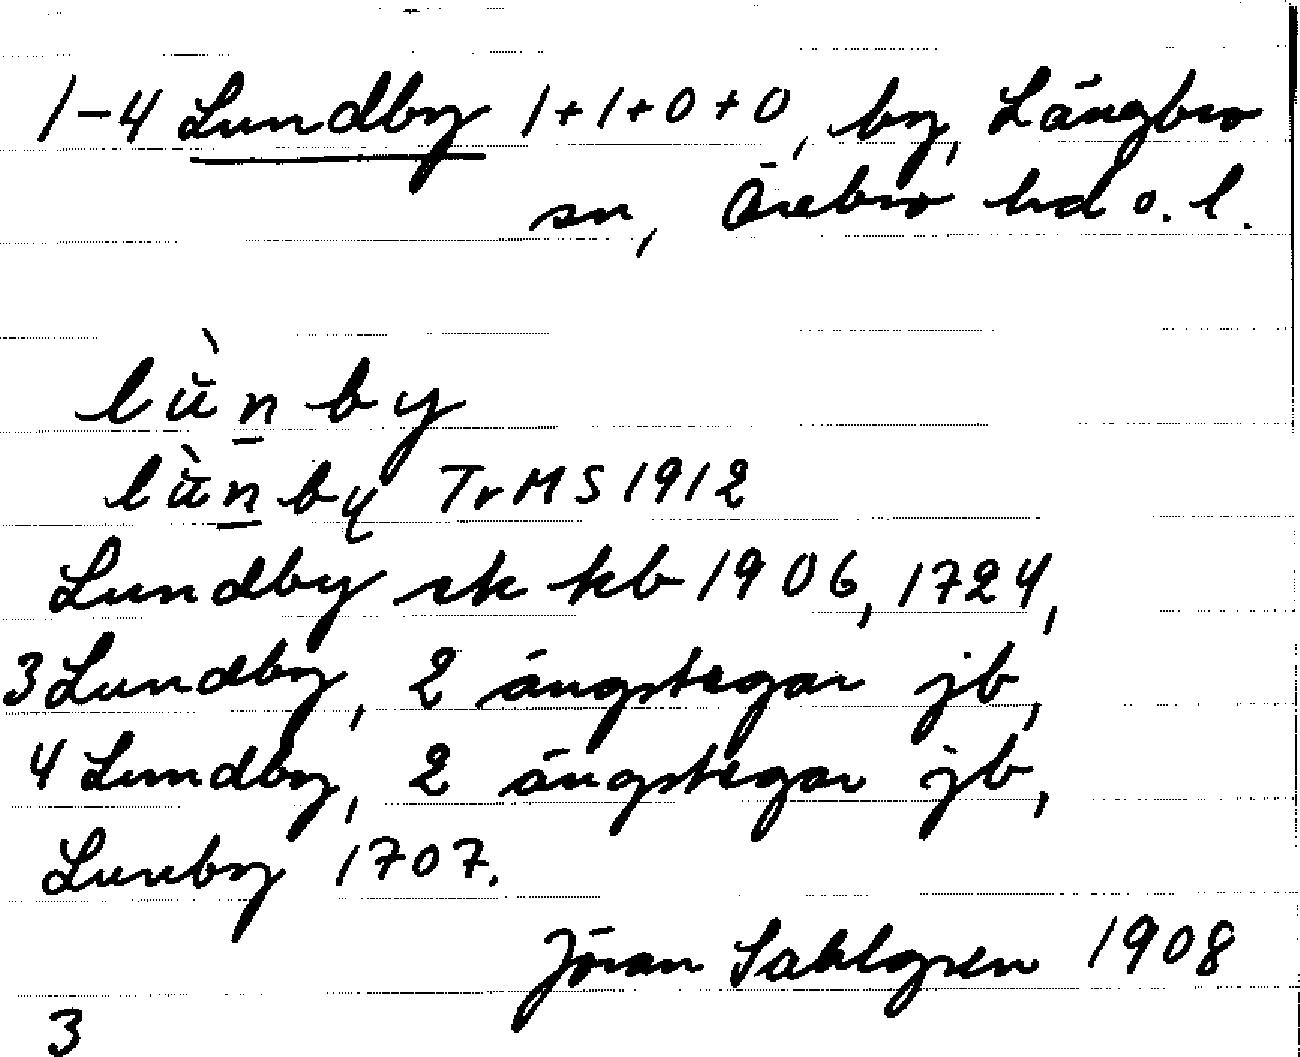 1-4 Lundby 1+1+0+0, by, Längbro
sn, Örebro hd o. l.
lù̈n̲by
lù̈n̲by TrMS 1912
Lundby sk kb 1906, 1724,
3 Lundby, 2 ängstegar jb,
4 Lundby, 2 ängstegar jb,
Lunby 1707.
Jöran Sahlgren 1908
3